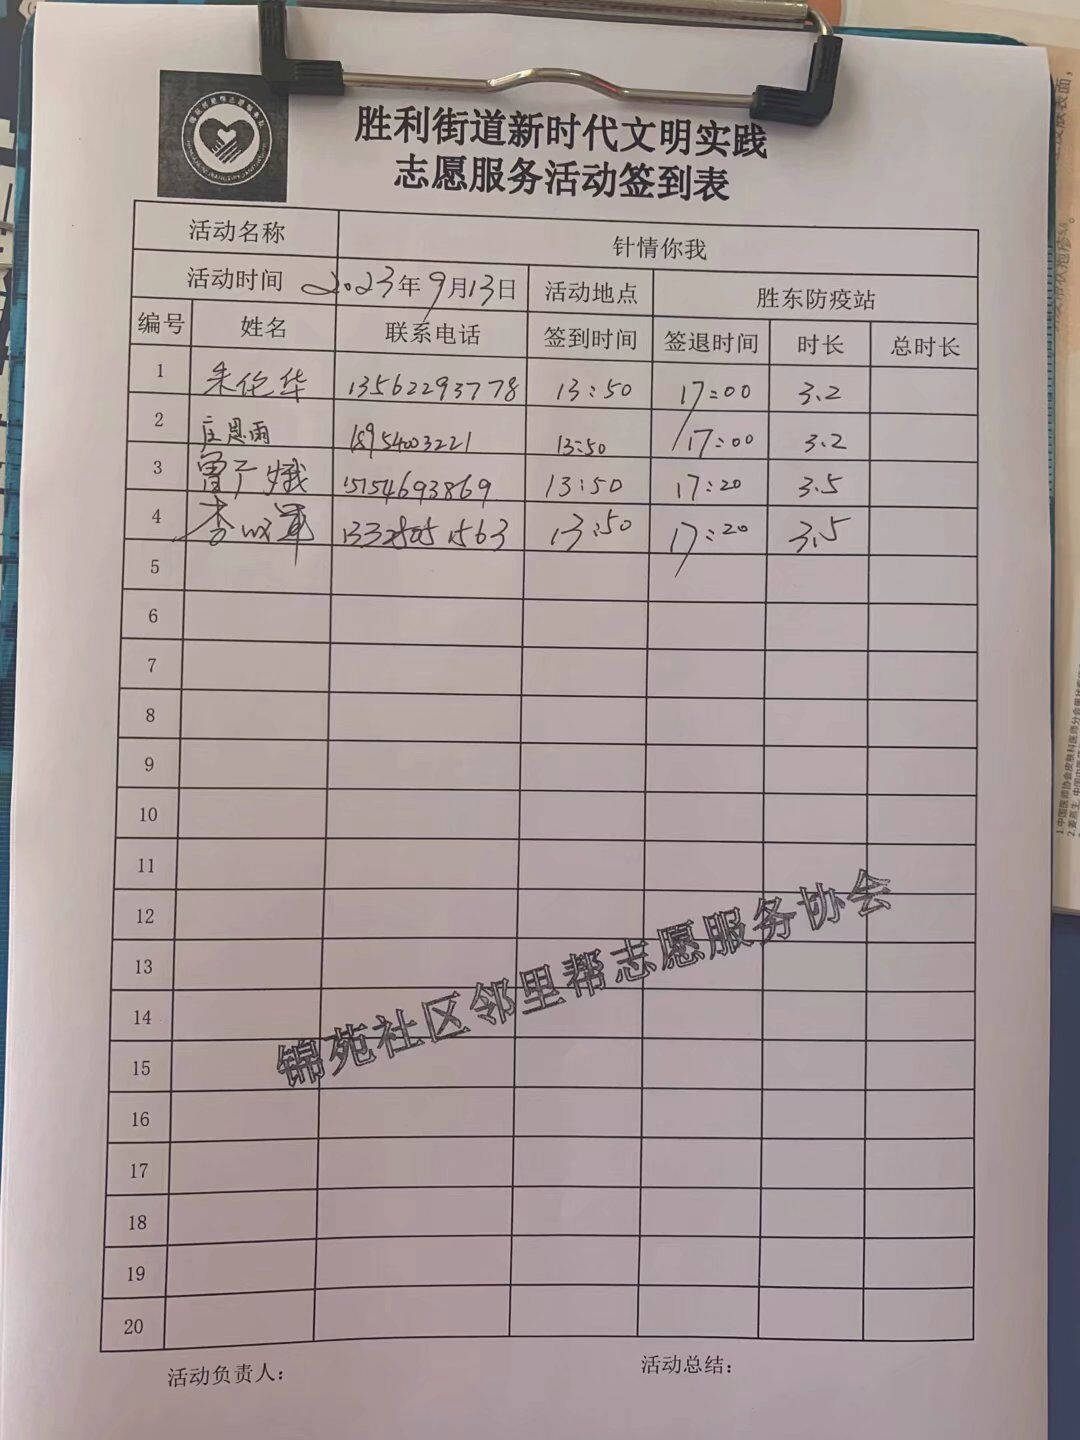 胜利街道新时代文明实践
志愿服务活动签到表
活动名称 针情你我
活动时间 2023年9月13日 活动地点 胜东防疫站
编号 姓名 联系电话 签到时间 签退时间 时长 总时长
1 朱伦华 13562293778 13:50 17:00 3.2
2 庄思雨 18954003221 13:50 17:00 3.2
3 曹广娥 15154693869 13:50 17:20 3.5
4 李 13:50 17:20 3.5
5
6
7
8
9
10
11
12
13
14
15
16
17
18
19
20
锦苑社区邻里帮志愿服务协会
活动负责人: 活动总结:
1.中国医师协会皮肤科医师分会